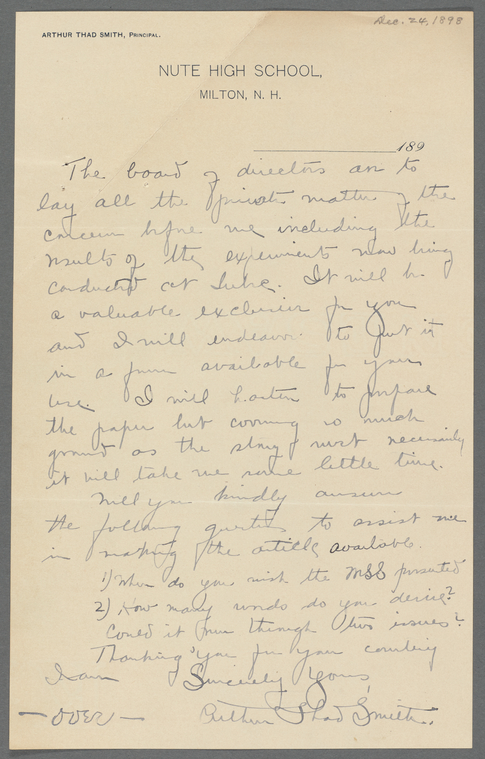 Dec. 24, 1898
ARTHUR THAD SMITH, PRINCIPAL.
NUTE HIGH SCHOOL,
MILTON, N. H.
189
The board of directors are to
lay all the private matter of the
concern before me including the
results of the experiments now being
conducted at Lubec. It will be
a valuable exclusive for you
and I will endeavor to put it
in a form available for your
use. I will hasten to prepare
the paper but covering so much
ground as the story must necessarily
it will take me some little time.
Will you kindly answer
the following questions to assist me
in making the article available.
1) When do you wish the MSS presented
2) How many words do you desire?
Could it run through two issues?
Thanking you for your courtesy
I am Sincerely Yours,
— over — Arthur Thad Smith.